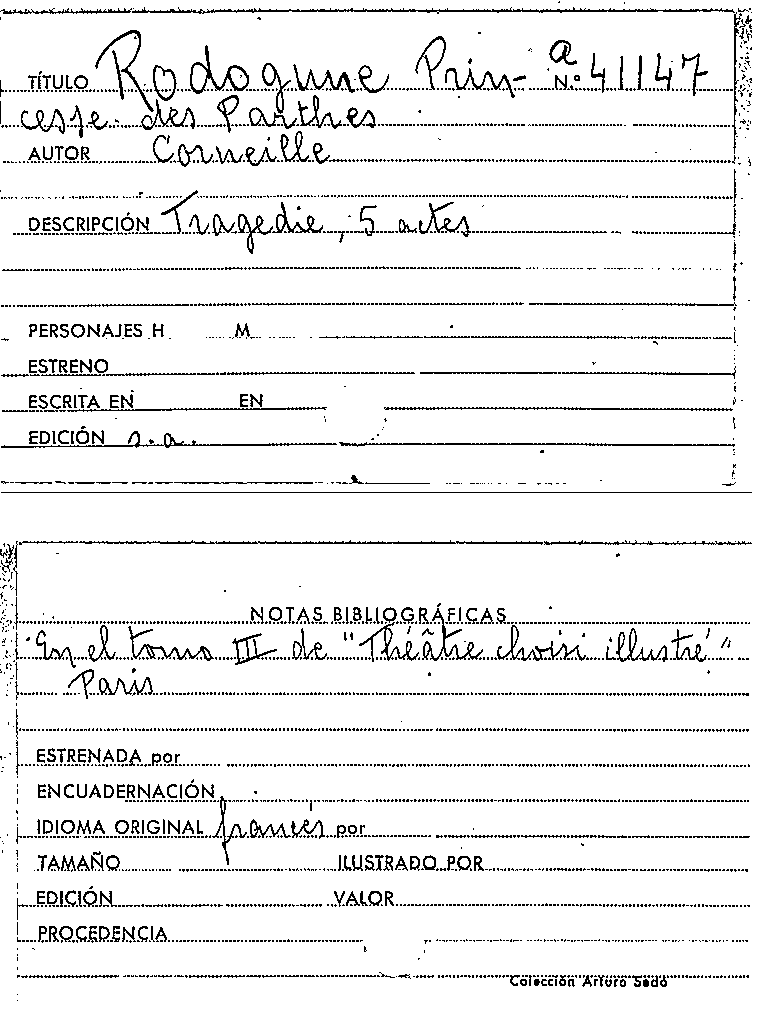 TÍTULO Rodogune Prin- a
N.º 41147
cesse des Parthes
AUTOR Corneille
DESCRIPCIÓN Tragedie, 5 actes
PERSONAJES H M
ESTRENO
ESCRITA EN EN
EDICIÓN s.a.
NOTAS BIBLIOGRÁFICAS
En el tomo III de "Théâtre choisi illustré"
Paris
ESTRENADA por
ENCUADERNACIÓN
IDIOMA ORIGINAL francés por
TAMAÑO ILUSTRADO POR
EDICIÓN VALOR
PROCEDENCIA
Colección Arturo Sedó